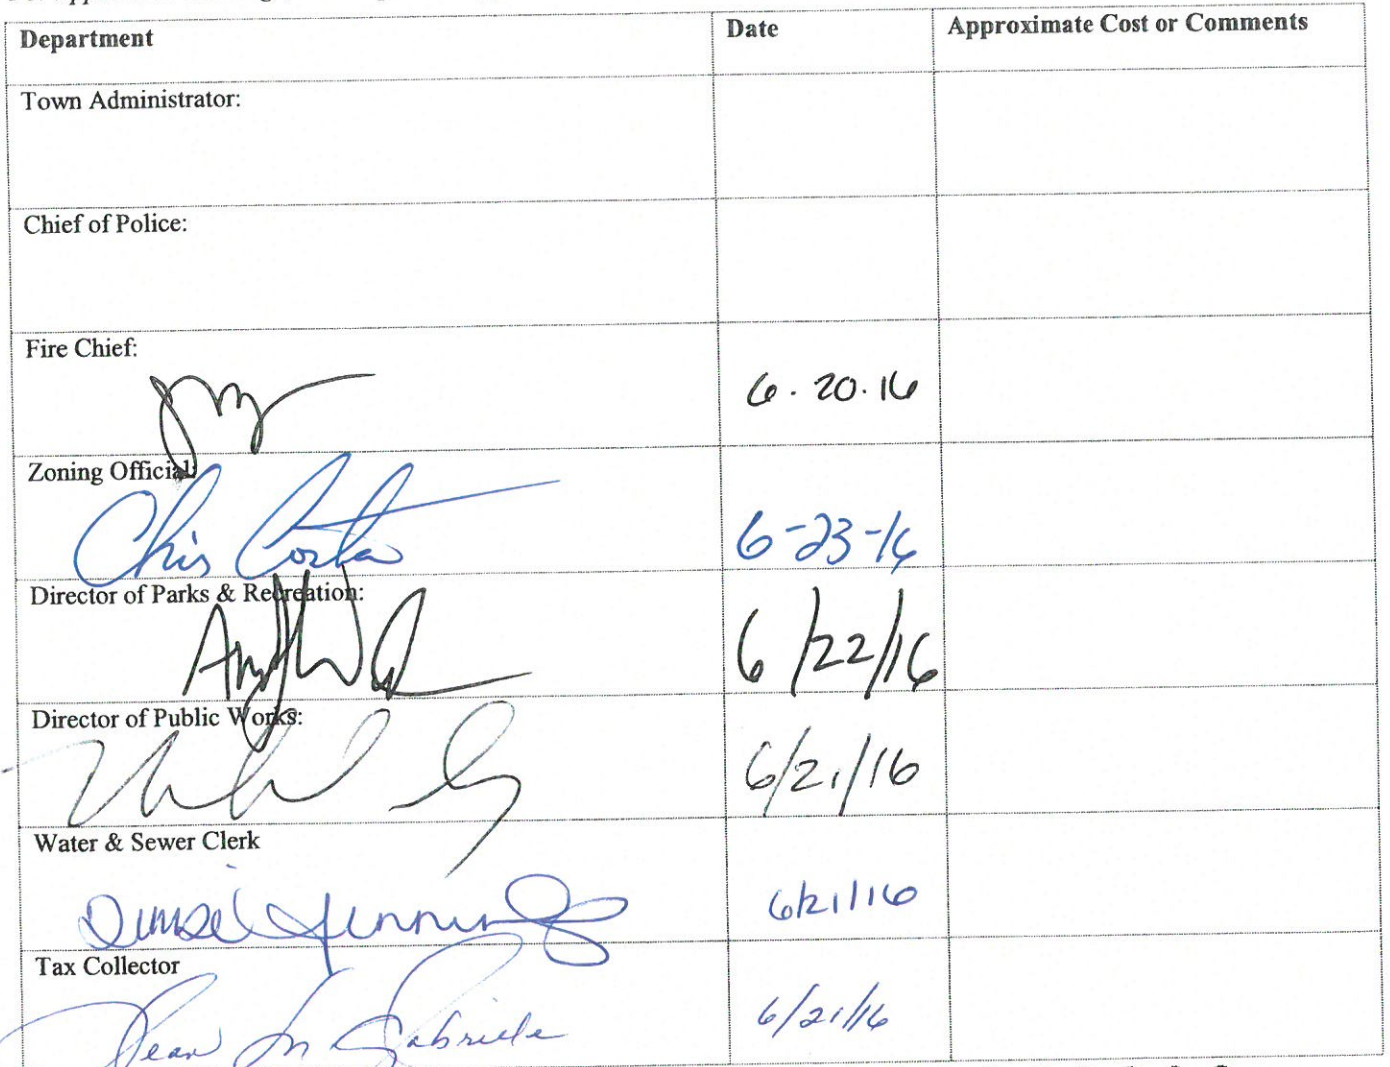 Department Date Approximate Cost or Comments
Town Administrator:
Chief of Police:
Fire Chief:
6.20.16
Zoning Official:
Chris Costa 6-23-16
Director of Parks & Recreation:
6/22/16
Director of Public Works:
6/21/16
Water & Sewer Clerk
Jennings 6/21/16
Tax Collector
Jean M Gabriele 6/21/16